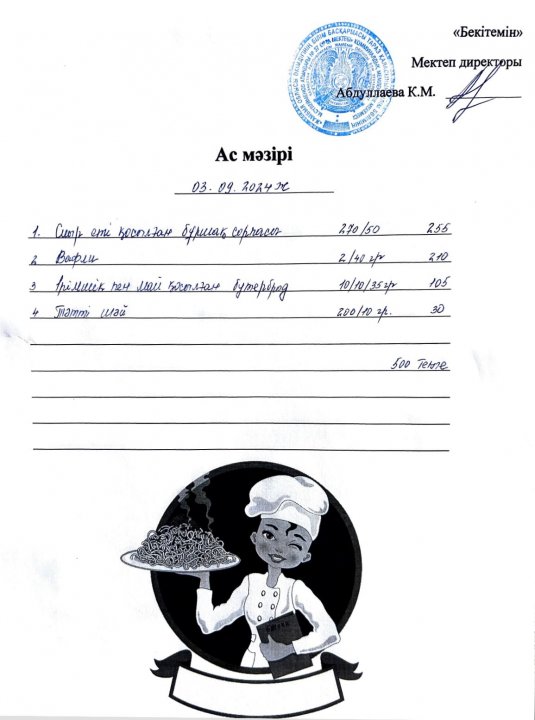 «Бекітемін»
Мектеп директоры
Абдуллаева К.М.
Ас мәзірі
03. 09. 2024ж
1. Сиыр еті қосылған бұршақ сорпасы 270/50 255
2 Вафли 2/40 гр 210
3 Ірімшік пен май қосылған бутерброд 10/10/35 гр 105
4 Тәтті шәй 200/10 гр. 30
500 теңге